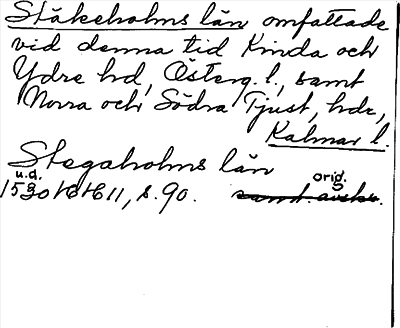 Stäkeholms län omfattade
vid denna tid Kinda och
Ydre hd, Österg. l., samt
Norra och Södra Tjust, hdr,
Kalmar l.
Stegaholms län
u.d. orig.
1530 16/6 11, s. 90.